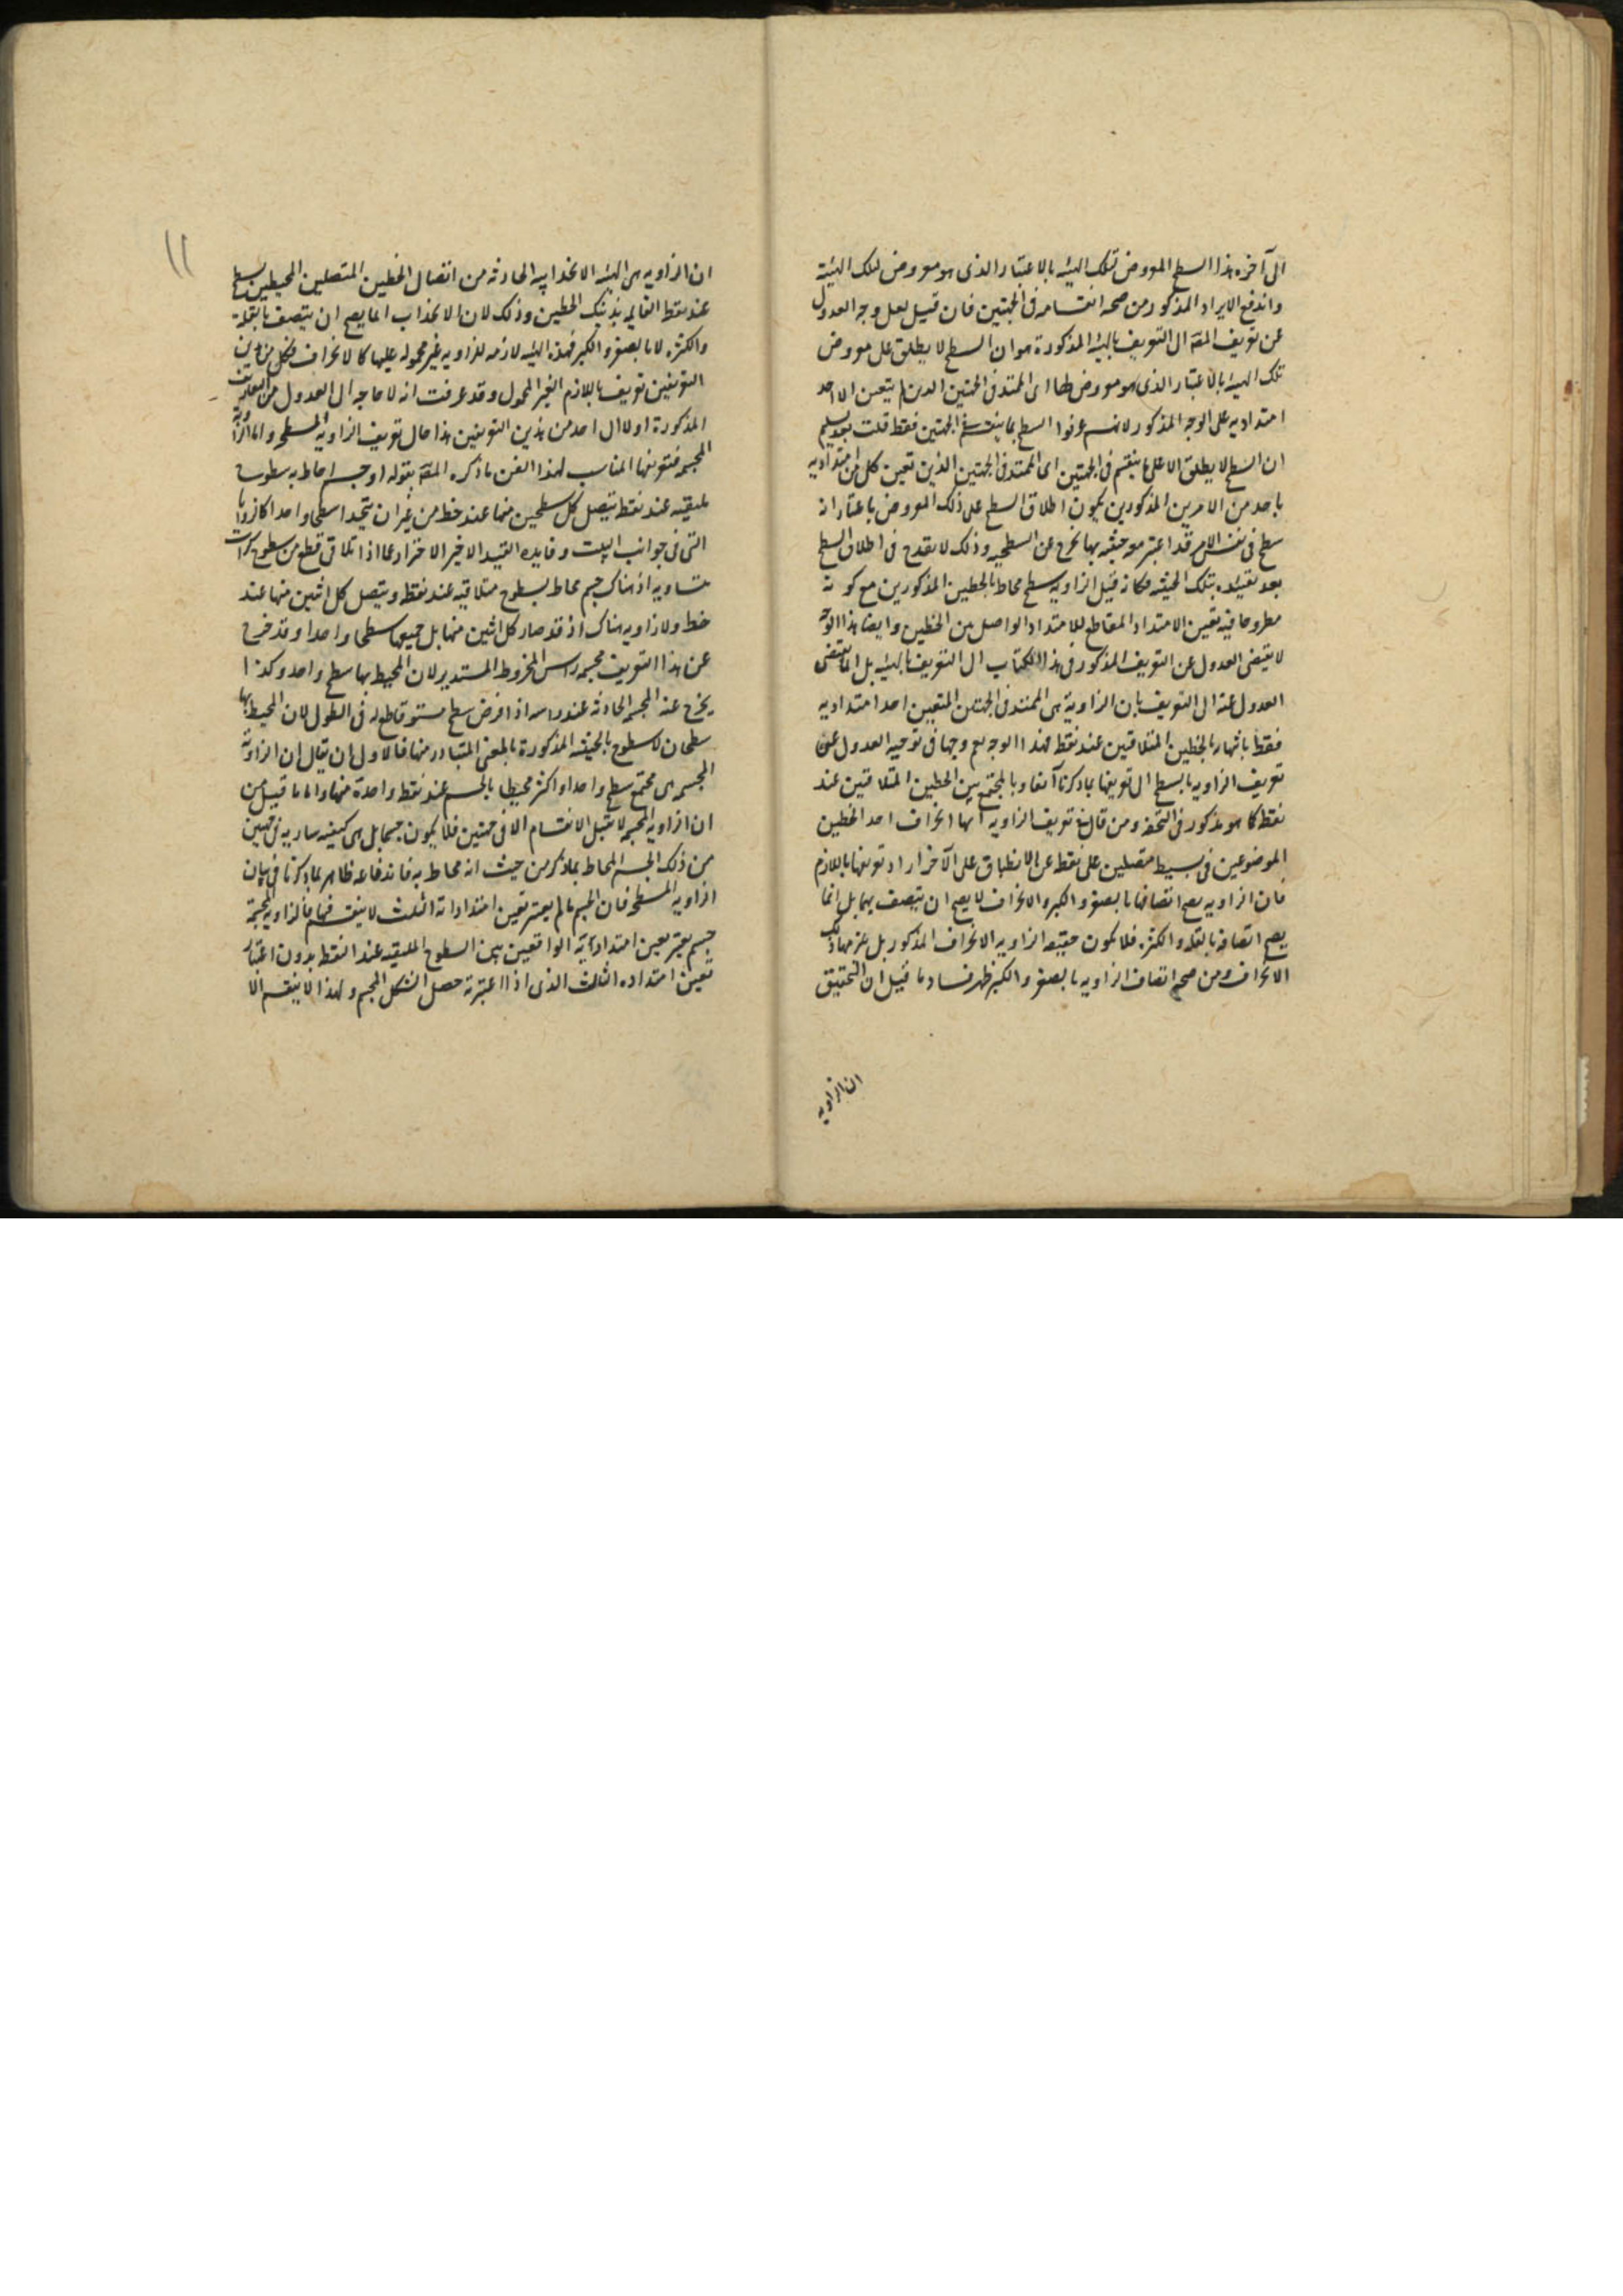 الى آخره هذا السطح المعروض تلك الهيئه بالاعتبار الذى هو معروض لتلك الهيئة
واندفع الايراد المذكور من صحه انقسامه فى الجهتين فان قيل لعل وجه العدول
عن تعريف المقه الى التعريف بالهيئه المذكورة هو ان السطح لا يطلق على معروض
تلك الهيئه بالاعتبار الذى هو معروض لها اى الممتد فى الجهتين الذين لم يتعين الا احد
امتداديه على الوجه المذكور لانهم عرفوا السطح بما ينقسم فى الجهتين فقط قلت بعد تسليم
ان السطح لا يطلق الا على ما ينقسم فى الجهتين اى الممتد فى الجهتين الذين تعين كل من امتداديه
باحد من الامرين المذكورين يكون اطلاق السطح على ذلك المعروض باعتبار انه
سطح فى نفس الامر قد اعتبر مع حيثيه بها تخرج عن السطحيه وذلك لا يقدح فى اطلاق السطح
بعد تقييده بتلك الحيثيه فكانه قيل الزاويه سطح محاط بالخطين المذكورين مع كونه
مطروحا فيه تعين الامتداد المقاطع للامتداد الواصل بين الخطين وايضا هذا الوجه
لا يقتضى العدول عن التعريف المذكور فى هذا الكتاب الى التعريف بالهيئه بل انما يقتضى
العدول عنه الى التعريف بان الزاوية هى الممتد فى الجهتين المتعين احد امتداديه
فقط بانتهاء بالخطين المتلاقيين عند نقطه فهذا الوجه يعم وجها فى توجيه العدول عن
تعريف الزاويه بالسطح الى تعريفها بما ذكرنا آنفا وبالمجتمع بين الخطين المتلاقيين عند
نقطه كما هو مذكور فى التحفه ومن قال فى تعريف الزاويه انها انحراف احد الخطين
الموضوعين فى بسيط متصلين على نقطه عن الانطباق على الآخر اراد تعريفها باللازم
فان الزاويه يصح اتصافها بالصغر والكبر والانحراف لا يصح ان يتصف بهما بل انما
يصح اتصافه بالقله والكثره فلا يكون حقيقه الزاويه الانحراف المذكور بل يلزمها ذلك
الانحراف ومن صحه اتصاف الزاويه بالصغر والكبر ظهر فساد ما قيل ان التحقيق
ان الزاويه
١١
ان الزاويه هى الهيئه الانحدابيه الحادثه من اتصال الخطين المتصلين المحيطين بسطح
عند نقطه التقائى بذينك الخطين وذلك لان الانحداب انما يصح ان يتصف بالقلة
والكثره لا بالصغر والكبر فهذه الهيئه لازمه للزاويه غير محموله عليها كالانحراف فكل من هذين
التعريفين تعريف باللازم الغير المحمول وقد عرفت انه لا حاجه الى العدول من التعاريف
المذكورة اولا الى احد من هذين التعريفين هذا حال تعريف الزاويه المسطحه واما الزاوية
المجسمه فتعريفها المناسب لهذا الفن ما ذكره المقه بقوله او جسم احاط به سطوح
ملتقيه عند نقطه يتصل كل سطحين منها عند خط من غير ان يتحدا سطحا واحدا كالزوايا
التى فى جوانب البيت وفايده القيد الاخير الاحتراز عما اذا تلاقى قطع من سطوح كرات
متساويه اذ هناك جسم محاط بسطوح متلاقيه عند نقطه ويتصل كل اثنين منها عند
خط ولا زاويه هناك اذ قد صار كل اثنين منها بل جميعها سطحا واحدا وقد خرج
عن هذا التعريف مجسمه راس المخروط المستدير لان المحيط بها سطح واحد وكذا
يخرج عنه المجسمه الحادثه عند راسه اذا فرض سطح مستو قاطع له فى الطول لان المحيط بها
سطحان لا سطوح بالحيثيه المذكورة بالمعنى المتبادر منها فالاولى ان يقال ان الزاوية
المجسمه هى مجتمع سطح واحد او اكثر محيط بالجسم عند نقطه واحدة منها واما ما قيل من
ان الزاويه المجسمه لا تقبل الانقسام الا فى جهتين فلا يكون جسما بل هى كيفيه ساريه فى جهتين
من ذلك الجسم المحاط بما ذكر من حيث انه محاط به فاندفاعه ظاهر بما ذكرنا فى بيان
الزاويه المسطحه فان الجسم ما لم يعتبر تعين امتداداته الثلث لا ينقسم فيها فالزاويه المجسمة
جسم يعتبر تعين امتداديه الواقعين بين السطوح الملتقيه عند النقطه بدون اعتبار
تعين امتداده الثالث الذى اذا اعتبرته حصل الشكل المجسم ولهذا لا ينقسم الا